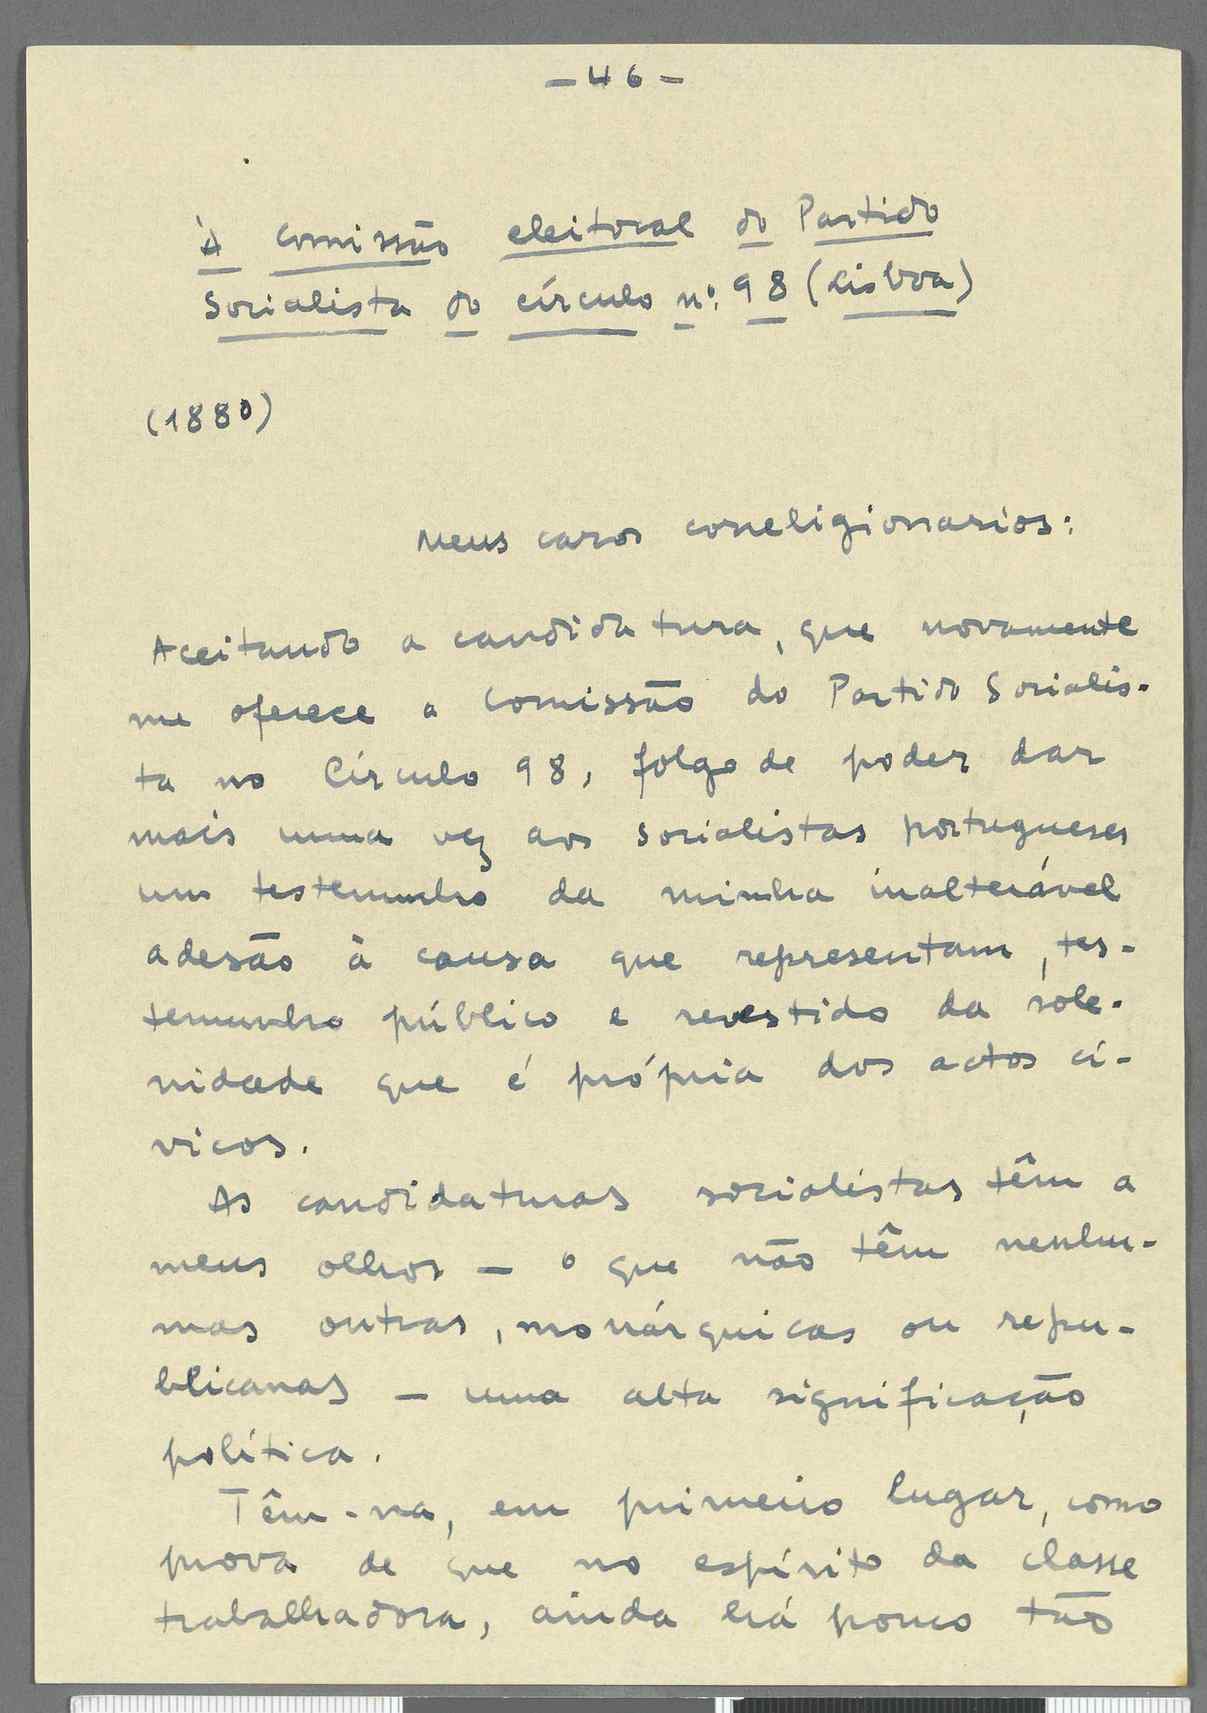 - 46 -
À Comissão eleitoral do Partido
Socialista do círculo nº. 98 (Lisboa)
(1880)
Meus caros correligionarios:
Aceitando a candidatura, que novamente
me oferece a Comissão do Partido Socialis-
ta no Círculo 98, folgo de poder dar
mais uma vez aos socialistas portugueses
um testemunho da minha inalterável
adesão à causa que representam, tes-
temunho público e revestido da sole-
nidade que é própria dos actos cí-
vicos.
As candidaturas socialistas têm a
meus olhos - o que não têm nenhu-
mas outras, monárquicas ou repu-
blicanas - uma alta significação
política.
Têm-na, em primeiro lugar, como
prova de que no espírito da classe
trabalhadora, ainda há pouco tão